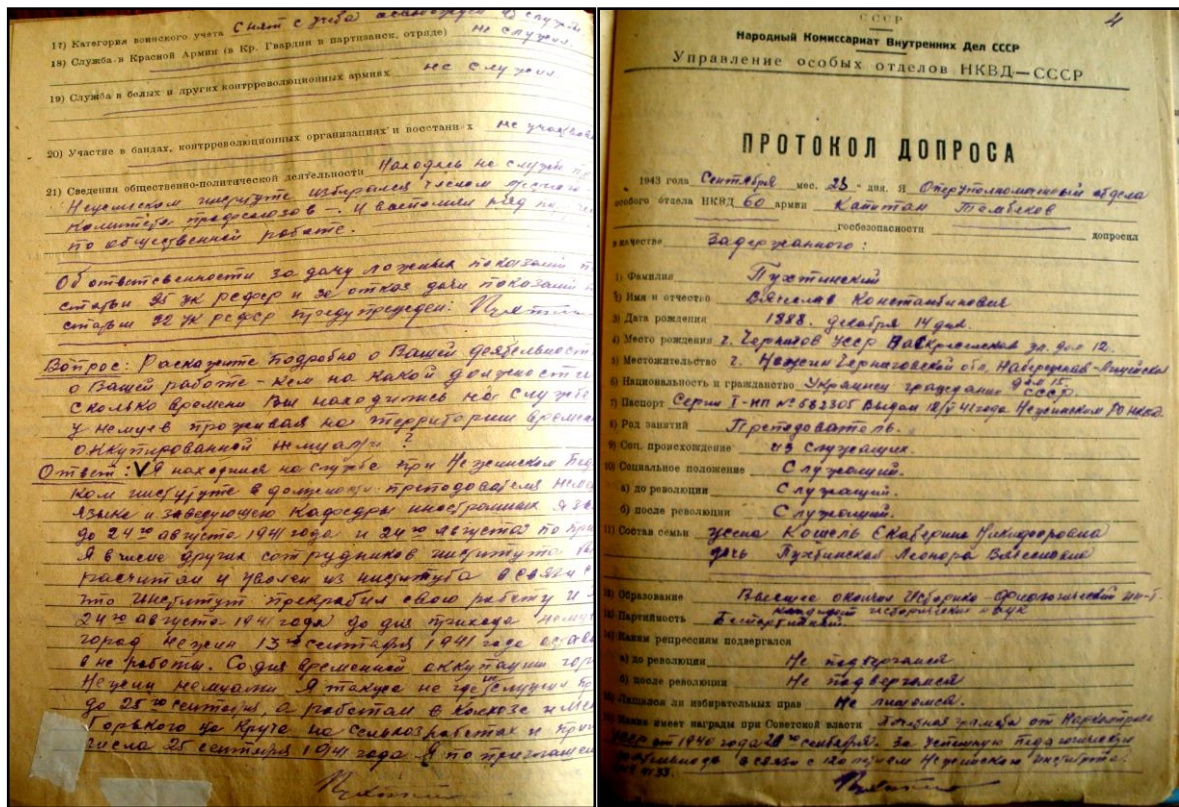 17) Категория воинского учета Снят с учета
18) Служба в Красной Армии (в Кр. Гвардии в партизанск, отряде) не служил.
19) Служба в белых и других контрреволюционных армиях не служил
20) Участие в бандах, контрреволюционных организациях и восстаниях не
21) Сведения общественно-политической деятельности Находясь на службе
Нежинском институте избирался членом местного
комитета профсоюзов. И выполнял ряд
по общественной работе.
Об ответственности за дачу ложных показаний
статьи 95 УК РСФСР и за отказ дачи показаний
статьи 92 УК РСФСР предупрежден:
Вопрос: Раскажите подробно о Вашей
о Вашей работе - кем на какой должности
сколько времени Вы находились на службе
у немцев проживая на территории
оккупированной немцами?
Ответ: Я находился на службе при Нежинском
институте в должности преподавателя
языка и заведующего Кафедры иностранных
до 24го августа 1941 года и 24го августа по
Я в числе других сотрудников института
расчитан и уволен из института в связи с
что институт прекратил свою работу и
24го августа 1941 года до дня прихода
город Нежин 13го сентября 1941 года
вне работы. Со дня временной оккупации
Нежин немцами Я также не где не служил
до 25го сентября, а работал в Колхозе
Горького на сельхозработах и
числа 25 сентября 1941 года Я по
4
СССР
Народный Комиссариат Внутренних Дел СССР
Управление особых отделов НКВД—СССР
ПРОТОКОЛ ДОПРОСА
1943 года Сентября мес. 23 дня. Я Оперуполномоченный отдела
особого отдела НКВД 60 армии Капитан
госбезопасности допросил
в качестве Задержанного:
1) Фамилия Пухтинский
2) Имя и отчество Вячеслав Константинович
3) Дата рождения 1888. декабря 14 дня.
4) Место рождения г. Чернигов УССР ул. дом 12.
5) Местожительство г. Нежин Черниговской обл.
дом 15.
6) Национальность и гражданство Украинец гражданин СССР.
7) Паспорт Серии I-НП № 582305 Выдан 12/V 41 года Нежинском РО НККД.
8) Род занятий Преподователь.
9) Соц. происхождение из служащих.
10) Социальное положение Служащий.
а) до революции Служащий.
б) после революции Служащий.
11) Состав семьи жена Кошель Екатерина Никифоровна
дочь Пухтинская Леонора
12) Образование Высшее окончил Историко-филологический ин-т.
кандидат исторических наук
13) Партийность Беспартийный.
14) Каким репрессиям подвергался
а) до революции Не подвергался
б) после революции Не подвергался
15) Лишался ли избирательных прав Не лишался.
16) Какие имеет награды при Советской власти Почетная грамота от
УССР от 1940 года сентября. За успешную
в связи с 120 летием Нежинского Института.